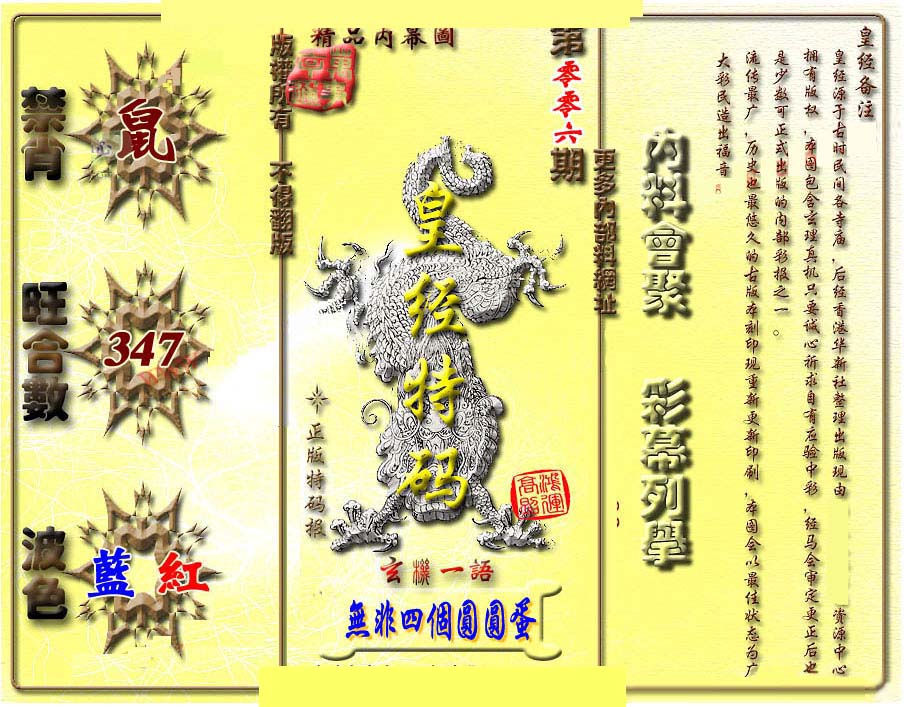 精品內幕圖
版權所有 不得翻版
第零零六期
更多內部料網址
皇经特码
正版特码报
鴻運高照
玄機一語
無非四個圓圓蛋
禁肖
鼠
旺合數
347
波色
藍 紅
內料會聚
彩幕列擧
皇经备注
皇经源于古时民间各寺庙,后经香港华新社整理出版现由 资源中心
拥有版权,本图包含玄理真机只要诚心祈求自有应验中彩,经马会审定更正后也
是少数可正式出版的内部彩报之一。
流传最广,历史也最悠久的古版本刻印现重新更新印刷,本图会以最佳状态为广
大彩民造出福音